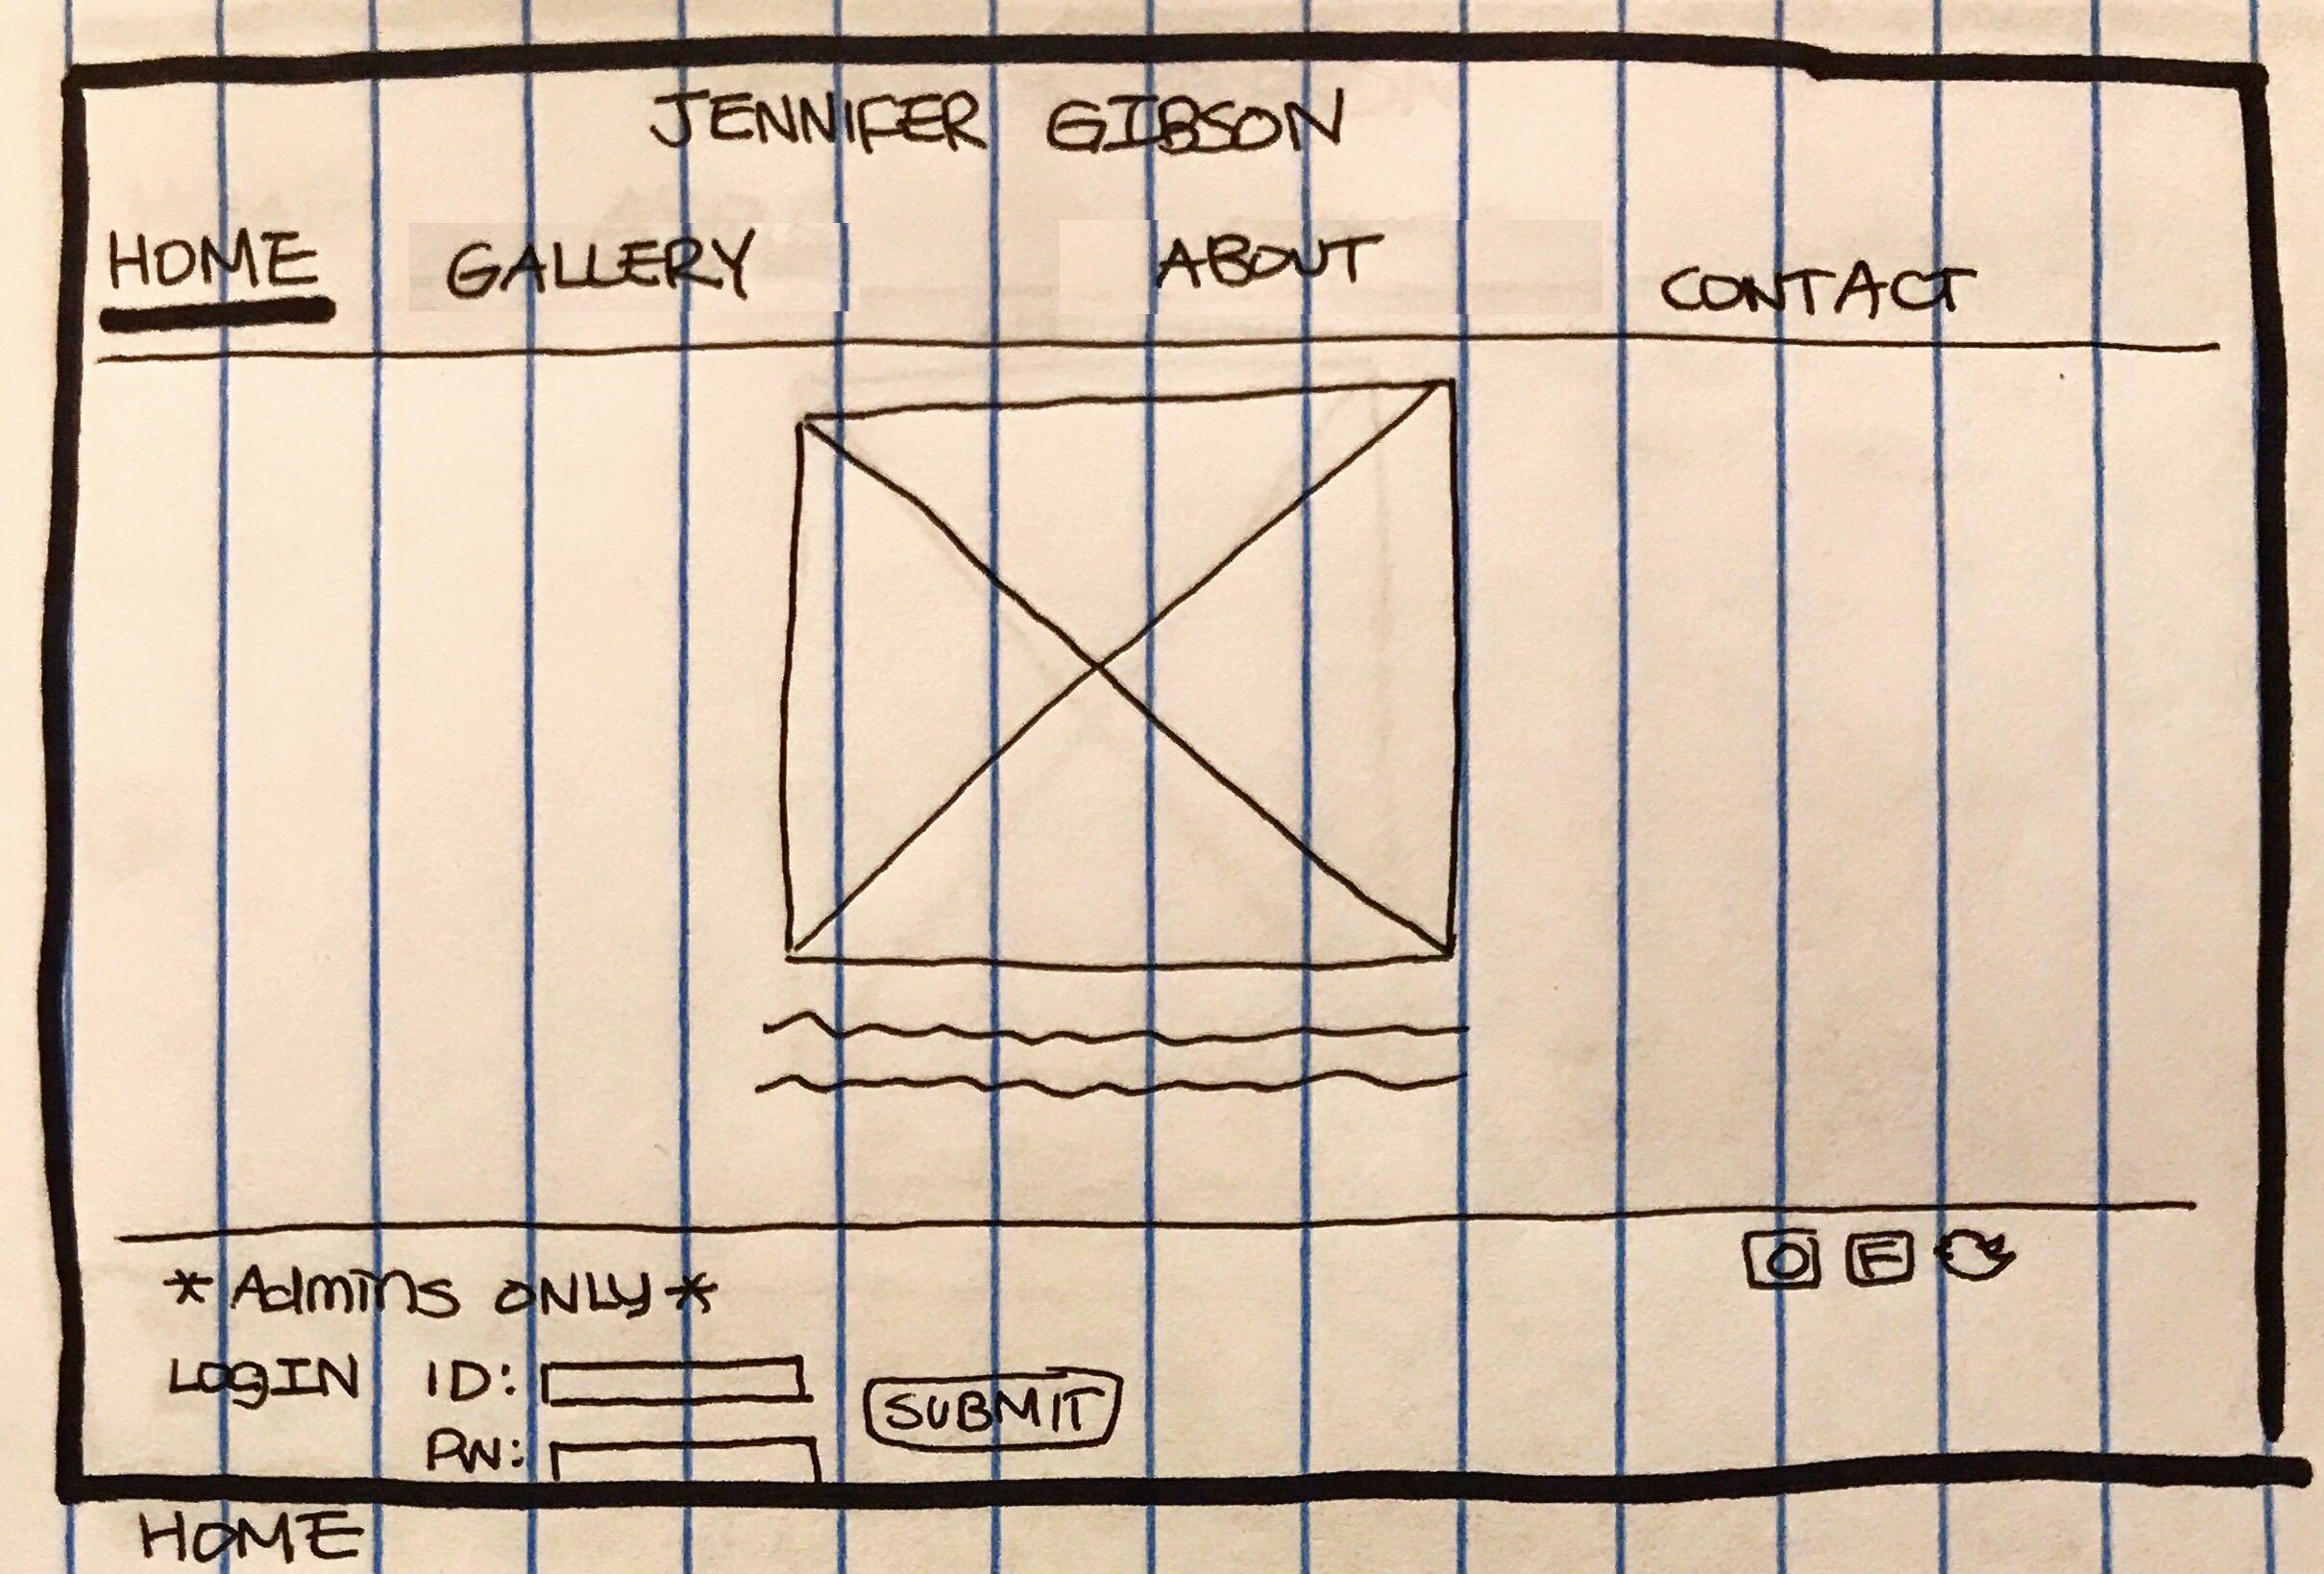 JENNIFER GIBSON
HOME GALLERY ABOUT CONTACT
*Admins ONLY*
F
LOGIN ID:
SUBMIT
PW:
HOME